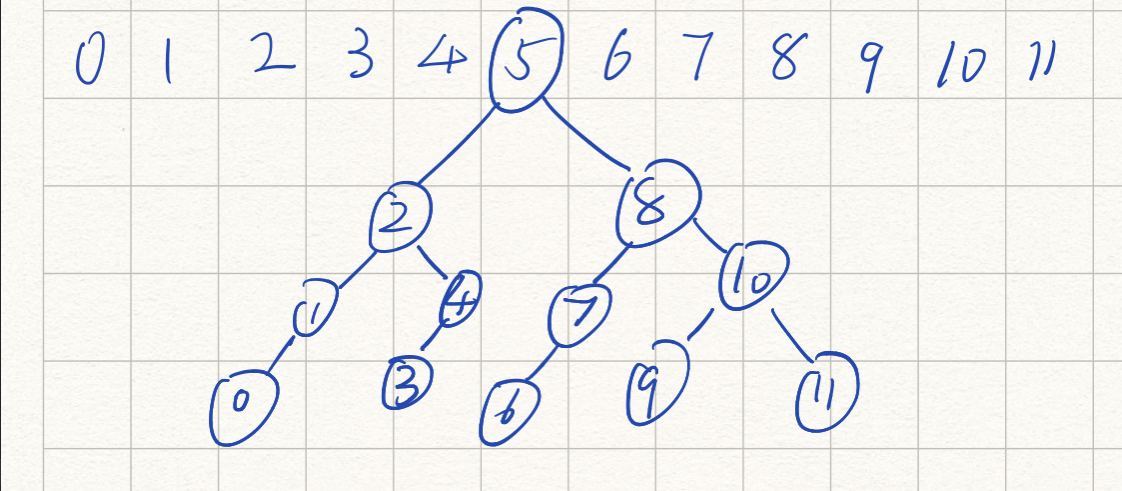 0 1 2 3 4 5 6 7 8 9 10 11
2 8
1 4 7 10
0 3 6 9 11